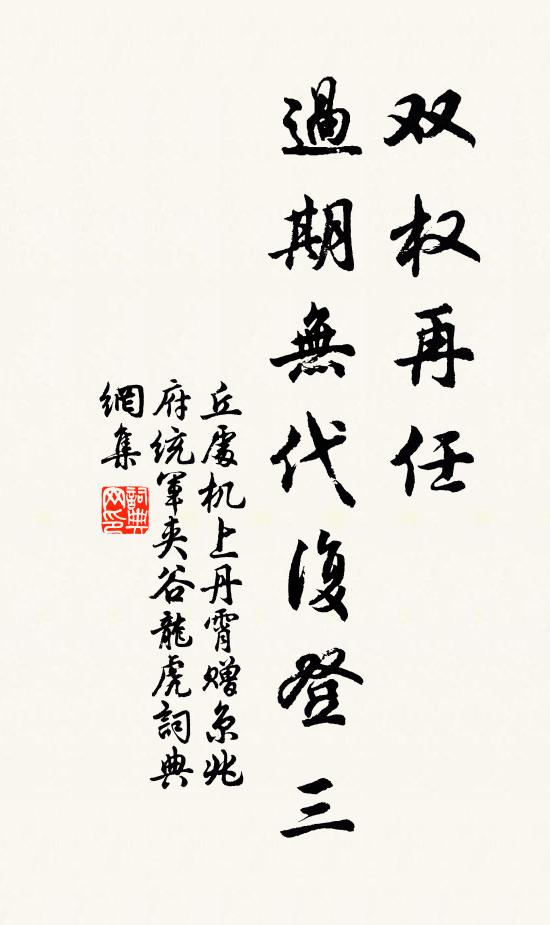 双权再任
過期無代復登三
丘處机上丹霄赠京兆
府统军夹谷龍虎詞典
網集
詞典
网印